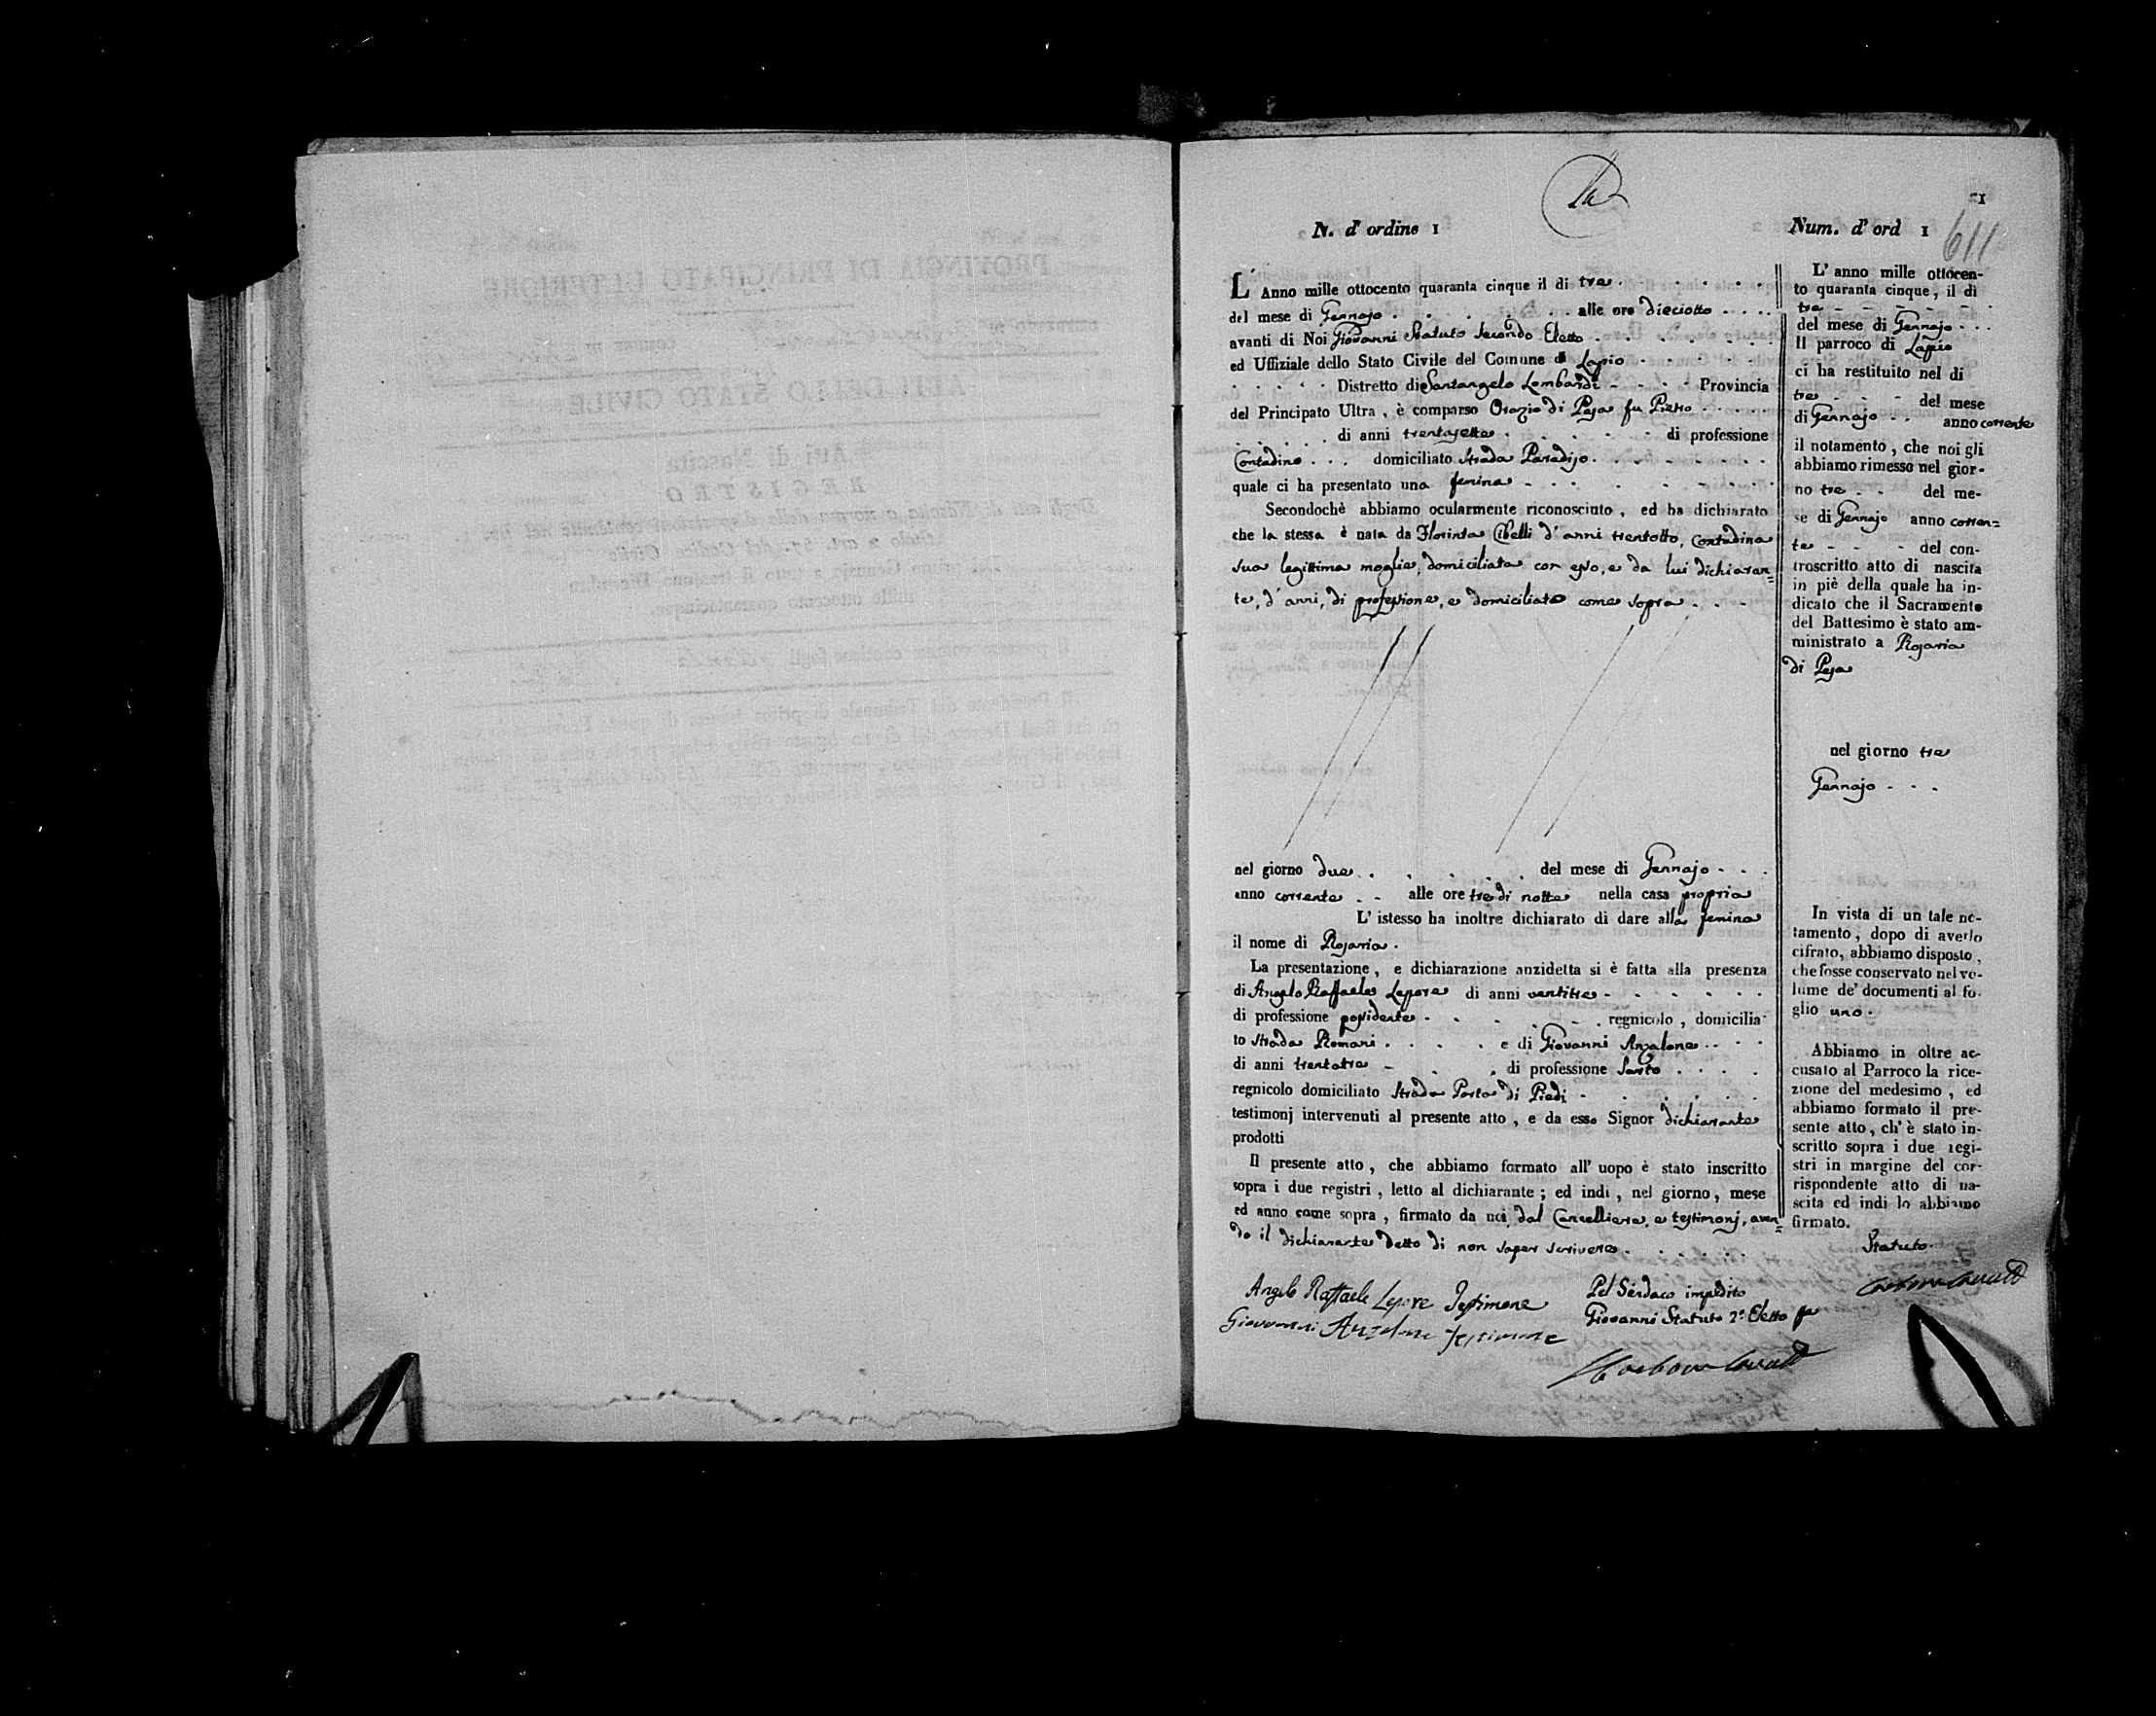 1
611
N. d' ordine 1
L' Anno mille ottocento quaranta cinque il di tre
del mese di Gennajo alle ore dieciotto
avanti di Noi Giovanni Statuto Secondo Eletto
ed Uffiziale dello Stato Civile del Comune di Lapio
Distretto di Santangelo Lombardi Provincia
del Principato Ultra, è comparso Orazio di Pesa fu Pietro
di anni trentasette di professione
Contadino domiciliato Strada Paradiso
quale ci ha presentato una femina
Secondochè abbiamo ocularmente riconosciuto, ed ha dichiarato
che la stessa è nata da Florinta Cibelli d'anni trentotto, Contadina
sua legittima moglie, domiciliata con esso, e da lui dichiaran=
te, d'anni, di professione, e domiciliato come sopra
nel giorno due del mese di Gennajo
anno corrente alle ore tre di notte nella casa propria
L' istesso ha inoltre dichiarato di dare alla femina
il nome di Rosaria.
La presentazione, e dichiarazione anzidetta si è fatta alla presenza
di Angelo Raffaele Lepore di anni ventitre
di professione possidente regnicolo, domicilia-
to Strada Romani e di Giovanni Anzalone
di anni trentatre di professione Sarto
regnicolo domiciliato Strada Porta di Piedi
testimonj intervenuti al presente atto, e da esso Signor dichiarante
prodotti
Il presente atto, che abbiamo formato all' uopo è stato inscritto
sopra i due registri, letto al dichiarante; ed indi, nel giorno, mese
ed anno come sopra, firmato da noi, dal Cancelliere, e testimonj, aven=
do il dichiarante detto di non saper scrivere.
Angelo Raffaele Lepore Testimone
Giovanni Anzalone Testimone
Pel Sindaco impedito
Giovanni Statuto 2º Eletto
Num. d' ord 1
L' anno mille ottocen-
to quaranta cinque, il di
tre
del mese di Gennajo
Il parroco di Lapio
ci ha restituito nel di
tre del mese
di Gennajo anno corrente
il notamento, che noi gli
abbiamo rimesso nel gior-
no tre del me-
se di Gennajo anno corren=
te del con-
troscritto atto di nascita
in piè della quale ha in-
dicato che il Sacramento
del Battesimo è stato am-
ministrato a Rosaria
di Pesa
nel giorno tre
Gennajo
In vista di un tale no-
tamento, dopo di averlo
cifrato, abbiamo disposto,
che fosse conservato nel vo-
lume de' documenti al fo-
glio uno.
Abbiamo in oltre ac-
cusato al Parroco la rice-
zione del medesimo, ed
abbiamo formato il pre-
sente atto, ch' è stato in-
scritto sopra i due regi-
stri in margine del cor-
rispondente atto di na-
scita ed indi lo abbiamo
firmato.
Statuto